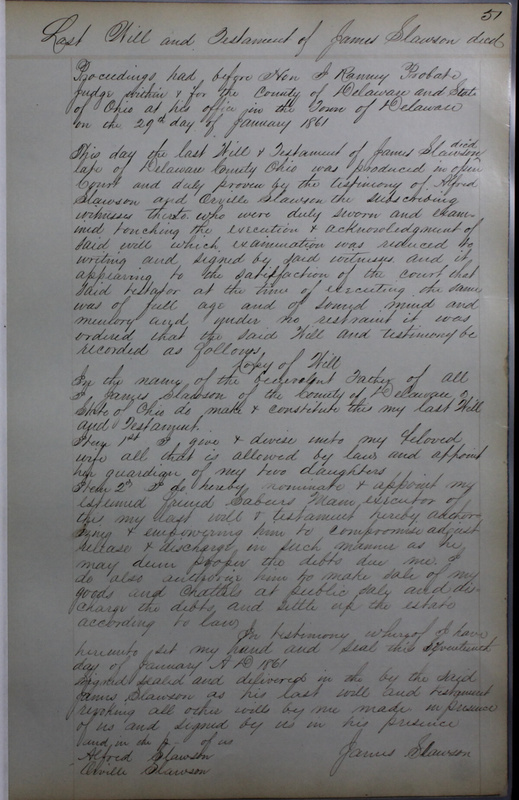 51
Last Will and Testament of James Slawson decd
Proceedings had before Hon Ranney Probate
Judge within & for the County of Delaware and State
of Ohio at his office in the Town of Delaware
on the 29th day of January 1861
This day the last Will & Testament of James Slawson decd
late of Delaware County Ohio was produced in open
Court and duly proven by the testimony of Alfred
Slawson and Orville Slawson the subscribing
witnesses thereto who were duly sworn and exam-
ined touching the execution & acknowledgment of
said will which examination was reduced to
writing and signed by said witnesses and it
appearing to the satisfaction of the court that
said testator at the time of executing the same
was of full age and of sound mind and
memory and under no restraint it was
ordered that the said Will and testimony be
recorded as follows
Copy of Will
In the name of the benevolent Father of all
I James Slawson of the County of Delaware &
State of Ohio do make & constitute this my last Will
and Testament.
Item 1st I give & devise unto my beloved
wife all that is allowed by law and appoint
her guardian of my two daughters
Item 2d I do hereby nominate & appoint my
esteemed friend Main executor of
this my last will & testament hereby author-
izing & empowering him to compromise adjust
release & discharge in such manner as he
may deem proper the debts due me I
do also authorize him to make sale of my
goods and chattels at public sale and dis-
charge the debts and settle up the estate
according to law
In testimony whereof I have
hereunto set my hand and seal this seventeenth
day of January A D 1861
Signed sealed and delivered in the by the said
James Slawson as his last will and testament
revoking all other wills by me made in presence
of us and signed by us in his presence
and in the of us
Alfred Slawson James Slawson
Orville Slawson